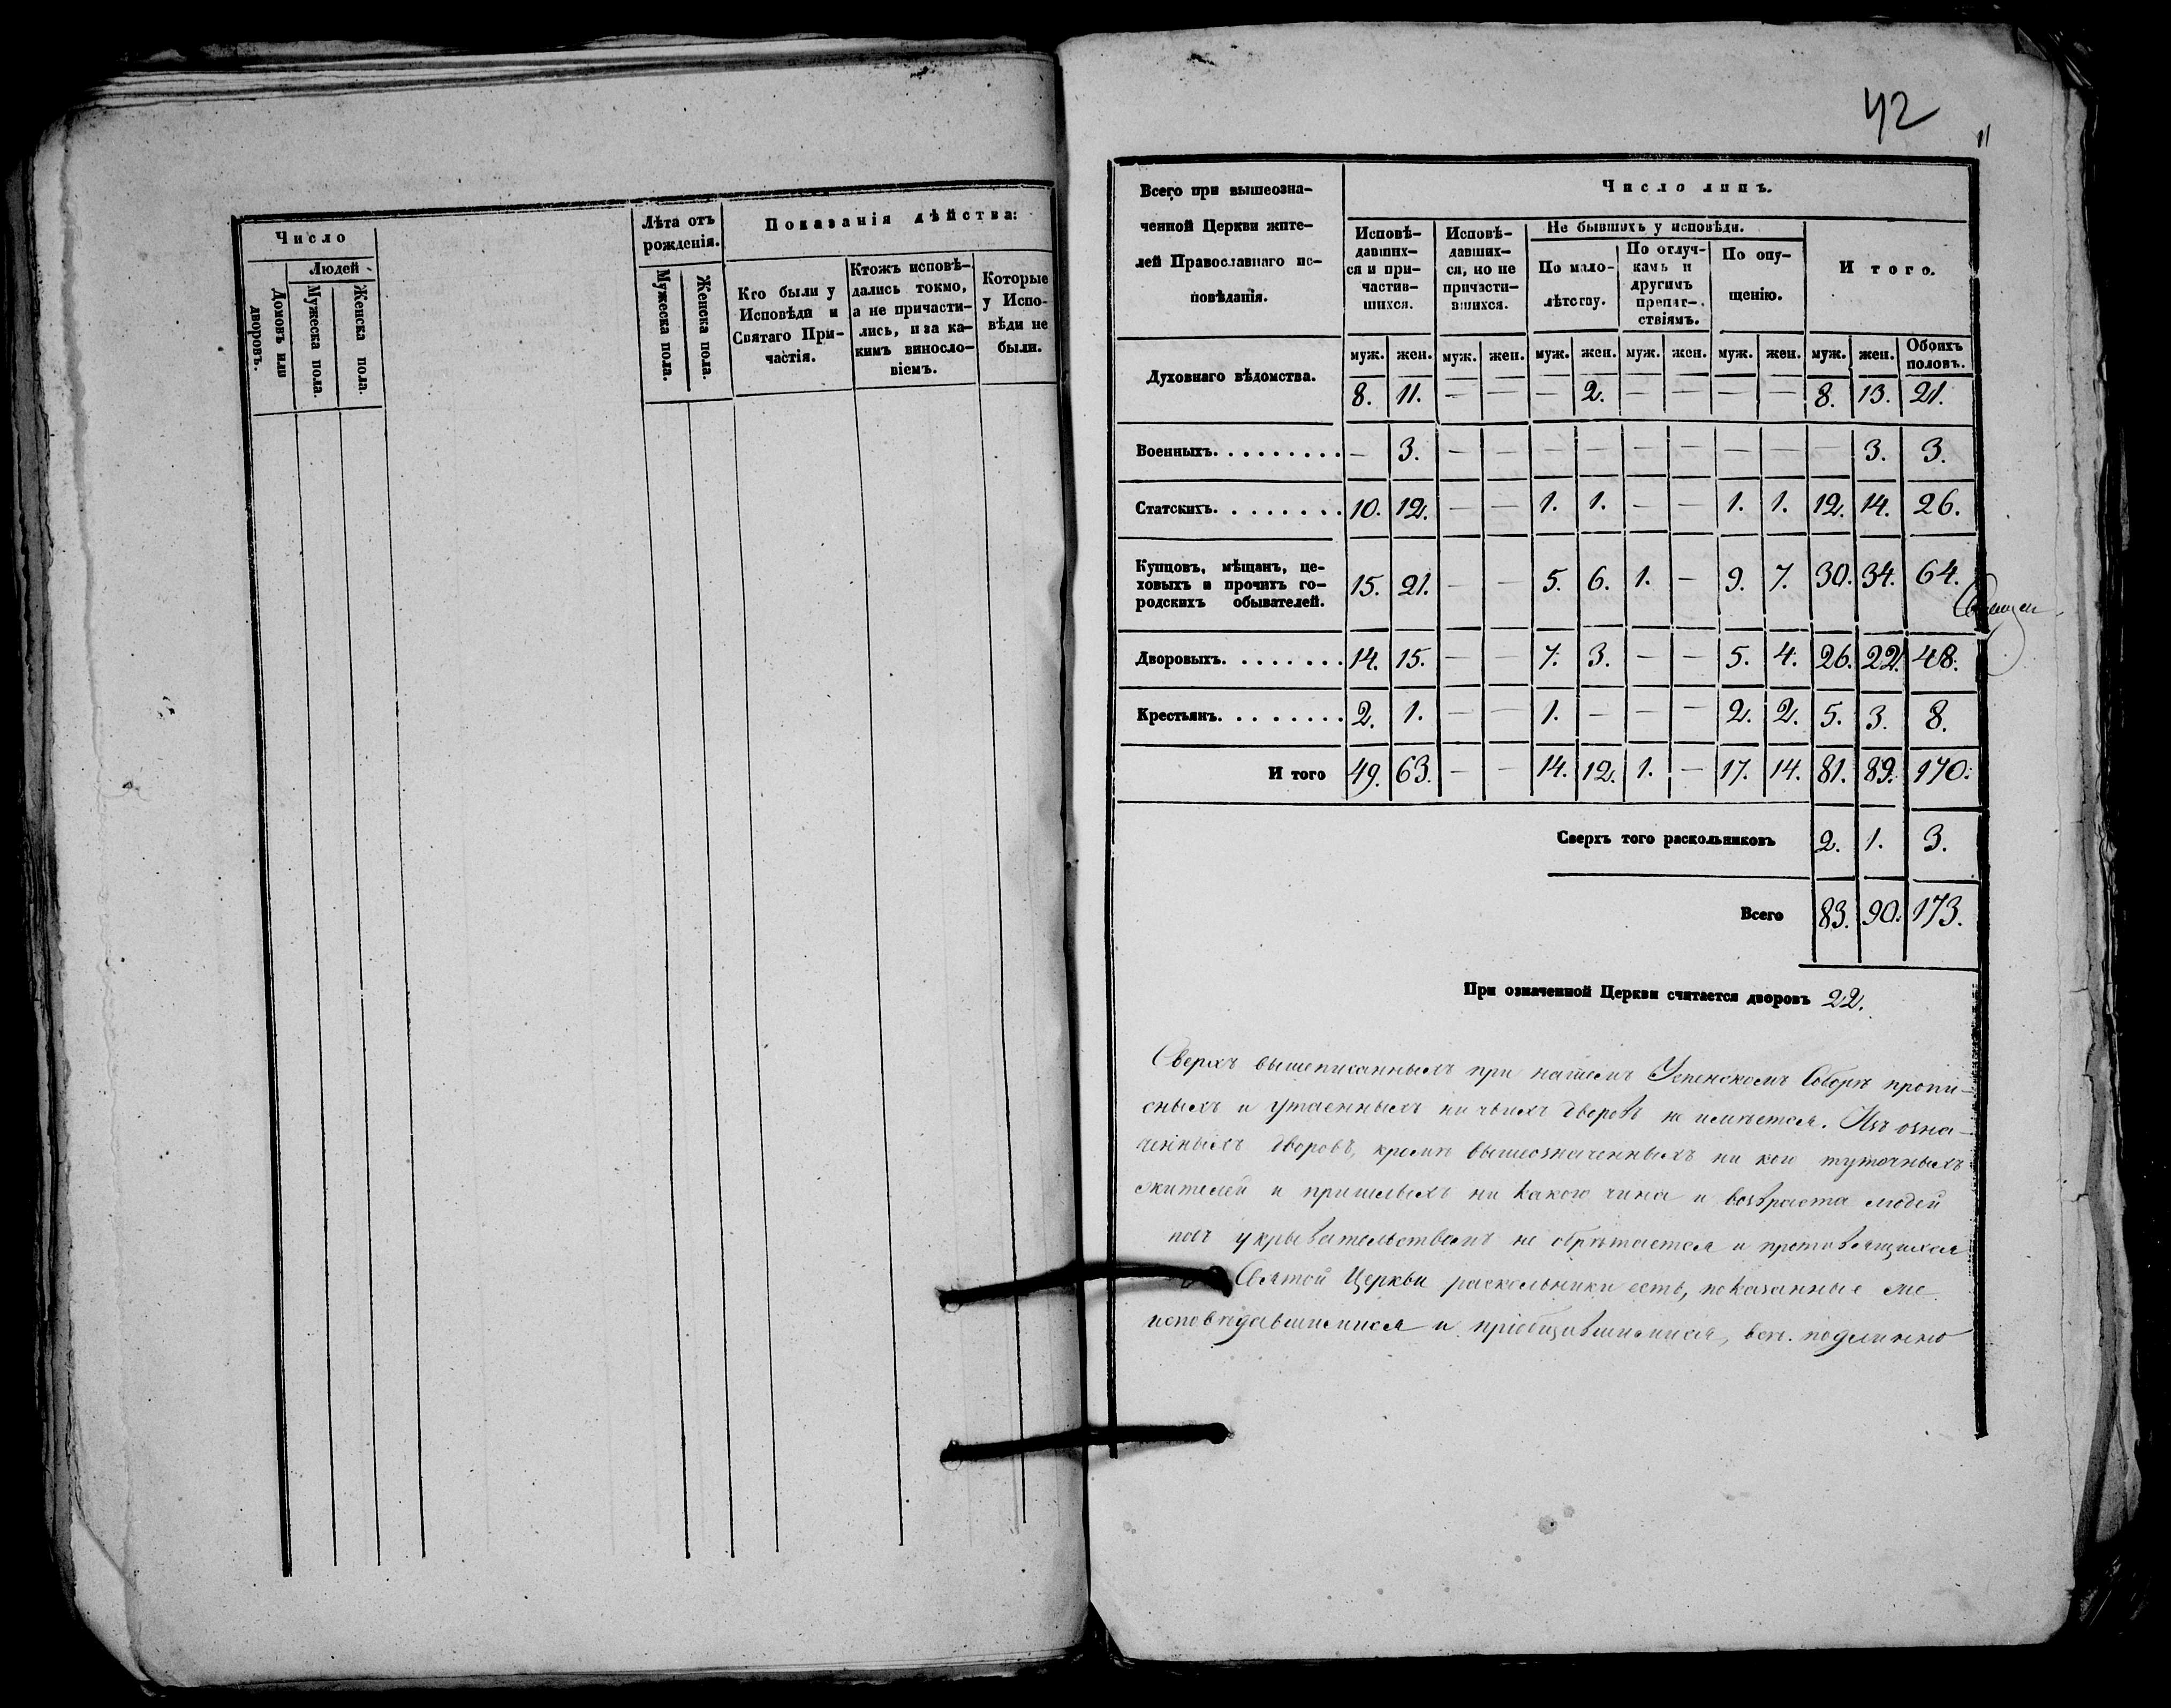 Число
Людей
Домовъ или дворовъ.
Мужеска пола
Женска пола
Лѣта отъ рожденія.
Мужеска пола.
Женска пола.
Показанія дѣйства:
Кто были у Исповѣди и Святаго Причастія.
Ктожъ исповѣ-
дались токмо,
а не причасти-
лись, и за ка-
кимъ винносло-
віемъ.
Которые
у Испо-
вѣди не
были.
42
11
Всего при вышеозна-
ченной Церкви жите-
лей Православнаго ис-
повѣданія.
Число лицъ.
Исповѣ-
давших-
ся и при-
частив-
шихся.
Исповѣ-
давших-
ся, но не
причасти-
вшихся.
Не бывшихъ у исповѣди.
По мало-
лѣтству.
По отлуч-
камъ и
другимъ
препят-
ствіямъ.
По опу-
щенію.
И того.
муж. жен. муж. жен. муж. жен. муж. жен. муж. жен. муж. жен. Обоихъ половъ.
Духовнаго вѣдомства. 8. 11. — — — 2. — — — — 8. 13. 21.
Военныхъ. . . . . . . . . — 3. — — — — — — — — — 3. 3.
Статскихъ. . . . . . . . 10. 12. — — 1. 1. — — 1. 1. 12. 14. 26.
Купцовъ, мѣщанъ, це-
ховыхъ и прочихъ го-
родскихъ обывателей. 15. 21. — — 5. 6. 1. — 9. 7. 30. 34. 64.
Дворовыхъ. . . . . . . . 14. 15. — — 7. 3. — — 5. 4. 26. 22. 48.
Крестьянъ. . . . . . . . 2. 1. — — 1. — — — 2. 2. 5. 3. 8.
И того 49. 63. — — 14. 12. 1. — 17. 14. 81. 89. 170.
Сверхъ того раскольниковъ 2. 1. 3.
Всего 83. 90. 173.
При означенной Церкви считается дворовъ 22.
Сверхъ вышеписанныхъ при нашемъ Успенскомъ Соборѣ пропи-
сныхъ и утаенныхъ ни чьихъ дворовъ не имѣется. Изъ озна-
ченныхъ дворовъ, кромѣ вышеозначенныхъ ни кого туточныхъ
жителей и пришлыхъ ни какого чина и возраста людей
подъ укрывательствомъ не обрѣтается и противящихся
Святой Церкви раскольники есть, показанные же
исповѣдавшимися и пріобщившимися, всѣ подлинно